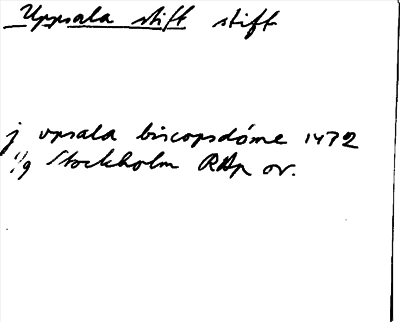 Uppsala stift stift
j vpsala biscopsdóme 1472
1/9 Stockholm RAp or.